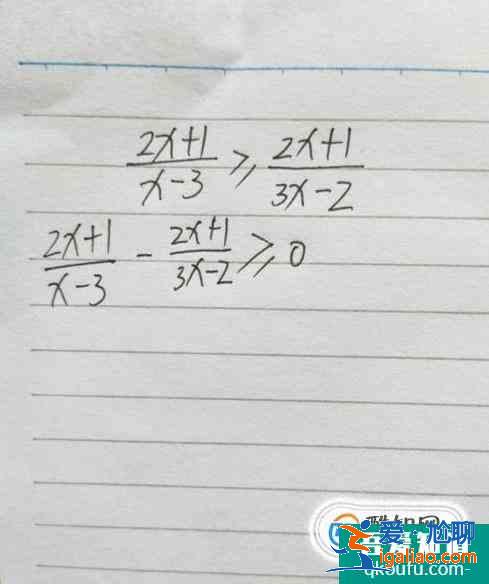 (2x+1)/(x-3) ≥ (2x+1)/(3x-2)
(2x+1)/(x-3) - (2x+1)/(3x-2) ≥ 0
爱尬聊
igaliao.com